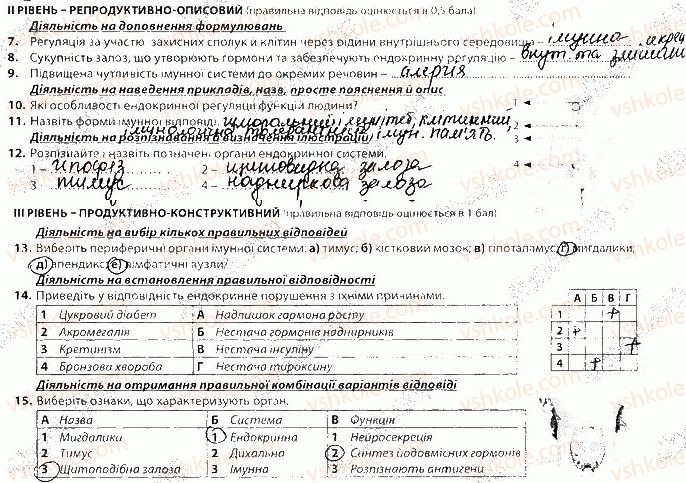 II РІВЕНЬ – РЕПРОДУКТИВНО-ОПИСОВИЙ (правильна відповідь оцінюється в 0,5 бала)
Діяльність на доповнення формулювань
7. Регуляція за участю захисних сполук і клітин через рідини внутрішнього середовища – імунна
8. Сукупність залоз, що утворюють гормони та забезпечують ендокринну регуляцію – внут. та зміш. секрец
9. Підвищена чутливість імунної системи до окремих речовин – алергія
Діяльність на наведення прикладів, назв, просте пояснення й опис
10. Які особливості ендокринної регуляції функцій людини?
11. Назвіть форми імунної відповіді. гуморальний імунітет, клітинний,
імунологічна толерантність, імун. пам'ять.
Діяльність на розпізнавання а визначення ілюстрацій
12. Розпізнайте і назвіть позначені органи ендокринної системи.
1 – гіпофіз 2 – щитовидна залоза
3 – тимус 4 – наднирковa залоза
1
2
3
4
III РІВЕНЬ – ПРОДУКТИВНО-КОНСТРУКТИВНИЙ (правильна відповідь оцінюється в 1 бал)
Діяльність на вибір кількох правильних відповідей
13. Виберіть периферичні органи імунної системи: а) тимус; б) кістковий мозок; в) гіпоталамус; г) мигдалики;
д) апендикс; е) лімфатичні вузли.
Діяльність на встановлення правильної відповідності
14. Приведіть у відповідність ендокринне порушення з їхніми причинами.
1 Цукровий діабет А Надлишок гормона росту
2 Акромегалія Б Нестача гормонів наднирників
3 Кретинізм В Нестача інсуліну
4 Бронзова хвороба Г Нестача тироксину
А Б В Г
1
2
3
4
Діяльність на отримання правильної комбінації варіантів відповіді
15. Виберіть ознаки, що характеризують орган.
А Назва Б Система В Функція
1 Мигдалики 1 Ендокринна 1 Нейросекреція
2 Тимус 2 Дихальна 2 Синтез йодовмісних гормонів
3 Щитоподібна залоза 3 Імунна 3 Розпізнають антигени
vshkole.com